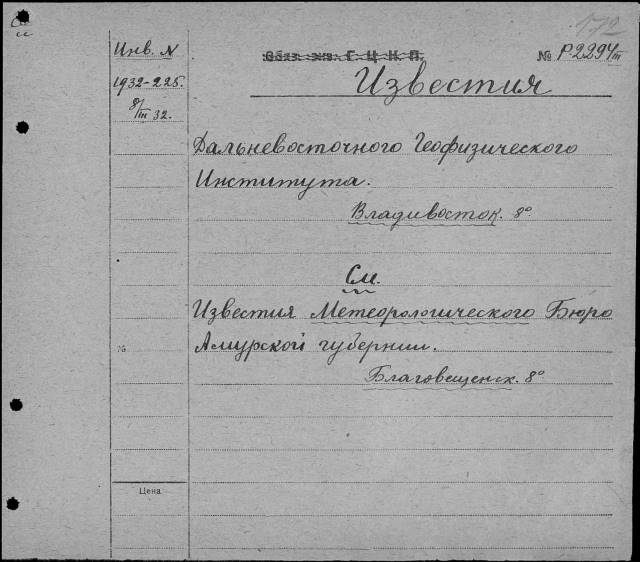 См
172
Инв. N
1932-225.
8/III 32.
№ Р-2294/III
Известия
Дальневосточного Геофизического
Института.
Владивосток. 8°
См.
Известия Метеорологического Бюро
Амурской губернии.
Благовещенск. 8°
№
Цена